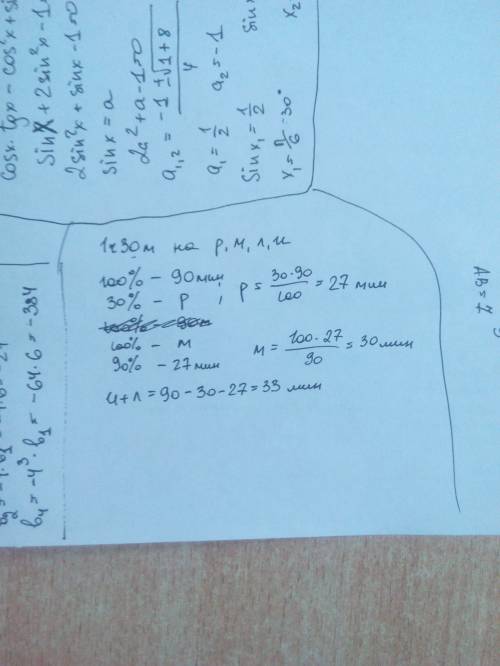 cosx·tgx - cos²x + si
sinx + 2sin²x - 1
2sin²x + sinx - 1=0
sinx = a
2a² + a - 1=0
a₁,₂ = -1 ± √1+8 / 4
a₁ = 1/2 a₂ = -1
sinx₁ = 1/2 sin
x₁ = π/6 = 30° x₂
1ч30м на р, м, л, и
100% - 90мин
30% - р , р = 30·90/100 = 27 мин
100% - м
90% - 27мин м = 100·27/90 = 30мин
и+л = 90-30-27 = 33 мин
b₄ = -4³·b₁ = -64·6 = -384
AB = 7